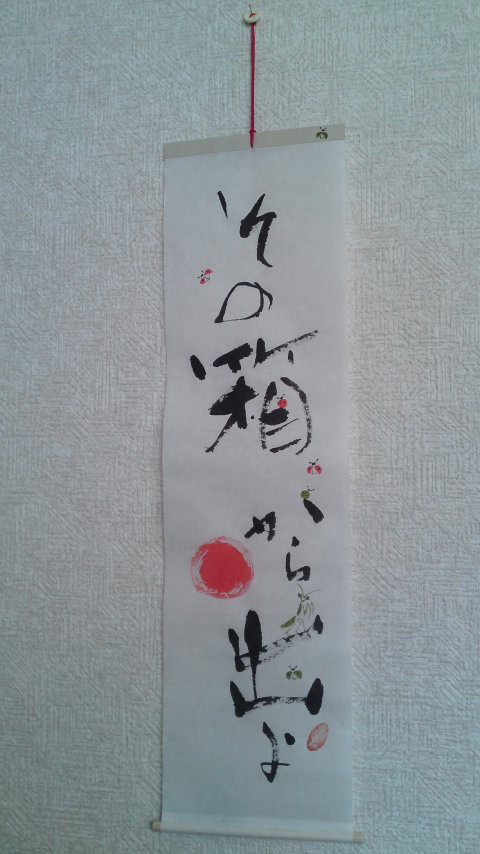 その箱から出よ